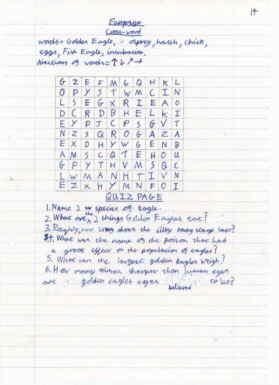 14
Cross-word
words = Golden Eagle, osprey, hatch, chick,
eggs, Fish Eagle, incubation.
directions of words =
G Z E F M G Q H K L
O P Y S T W M C I N
L S E G X R I E A O
D C R D B H E L K I
E Y P J C P S G V T
N Z S Q R O G A Z A
E X D H Y W G E N B
A M S C Q T E H O U
G F Y T H V M S B C
L W M A N H T I V N
E Z X H Y M N F O I
QUIZ PAGE
1. Name 2 species of eagle.
2. What are the 2 things Golden Eagles eat?
3. Roughly, how long does the stage last?
4. What was the name of the poison that had
a great effect on the population of eagles?
5. What can the largest golden eagles weigh?
6. How many times sharper than human eyes
are golden eagles eyes believed to be?